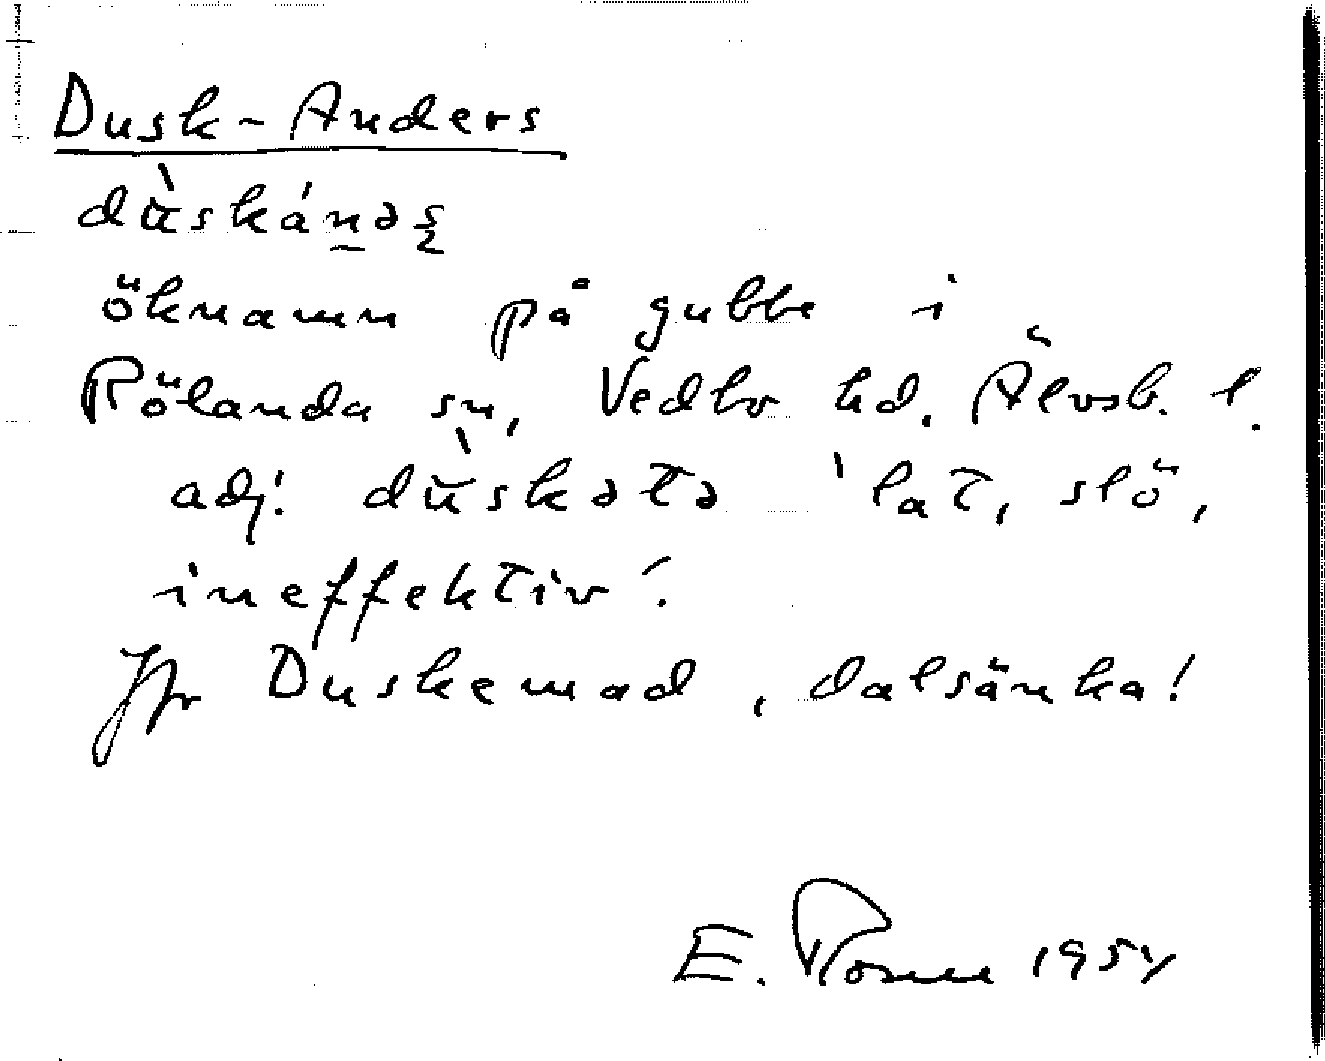 Dusk-Anders
dùskánəs
öknamn på gubbe i
Rölanda sn, Vedbo hd. Älvsb. l.
adj. dùskətə 'lat, slö,
ineffektiv'.
Jfr Duskemad, dalsänka!
E. Rosen 1954